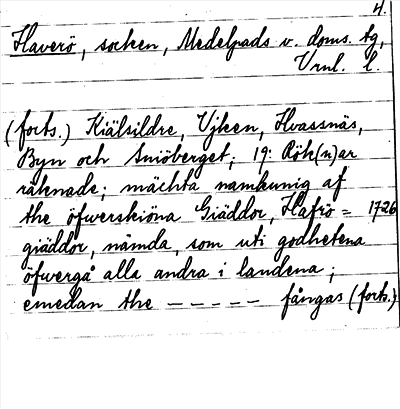 4.
Haverö, socken, Medelpads v. doms. tg,
Vrnl. l.
(forts.) Kiälsildre, Vjken, Hvassnäs,
Byn och Sniöberget; 19: Rök(n)ar
räknade; mächta namkunig af
the öfwerskiöna Giäddor, Hafrö= 1726
giäddor, nämda, som uti godhetena
öfvergå alla andra i landena;
emedan the ----- fångas (forts.)